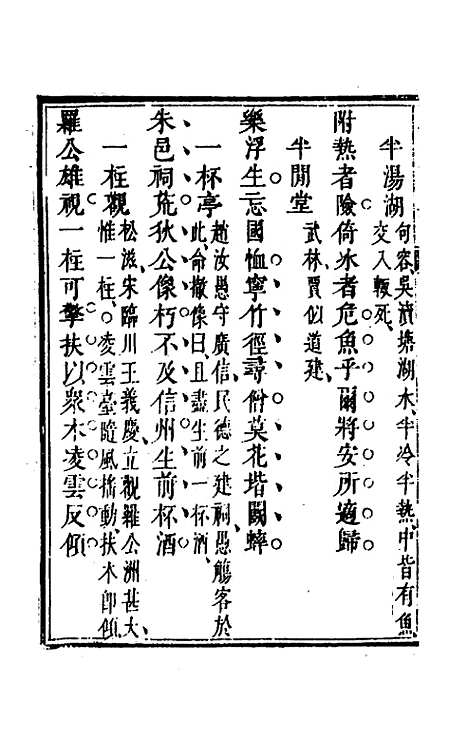 半湯湖 句容吳瀆塘湖水、半冷半熱中皆有魚
交入輙死、
附熱者險倚氷者危魚乎爾將安所適歸
半閒堂 武林賈似道建、
樂浮生忘國恤寧竹徑尋僧莫花堦鬬蟀
一杯亭 趙汝愚守廣信、民德之建祠、愚觴客於
此、命撤像曰、且盡生前一杯酒、
朱邑祠荒狄公像朽不及信州生前杯酒
一柱觀 松滋、宋臨川王義慶立觀羅公洲甚大、
惟一柱、凌雲臺隨風搖動、扶木即傾、
羅公雄視一柱可擎扶以衆木凌雲反傾